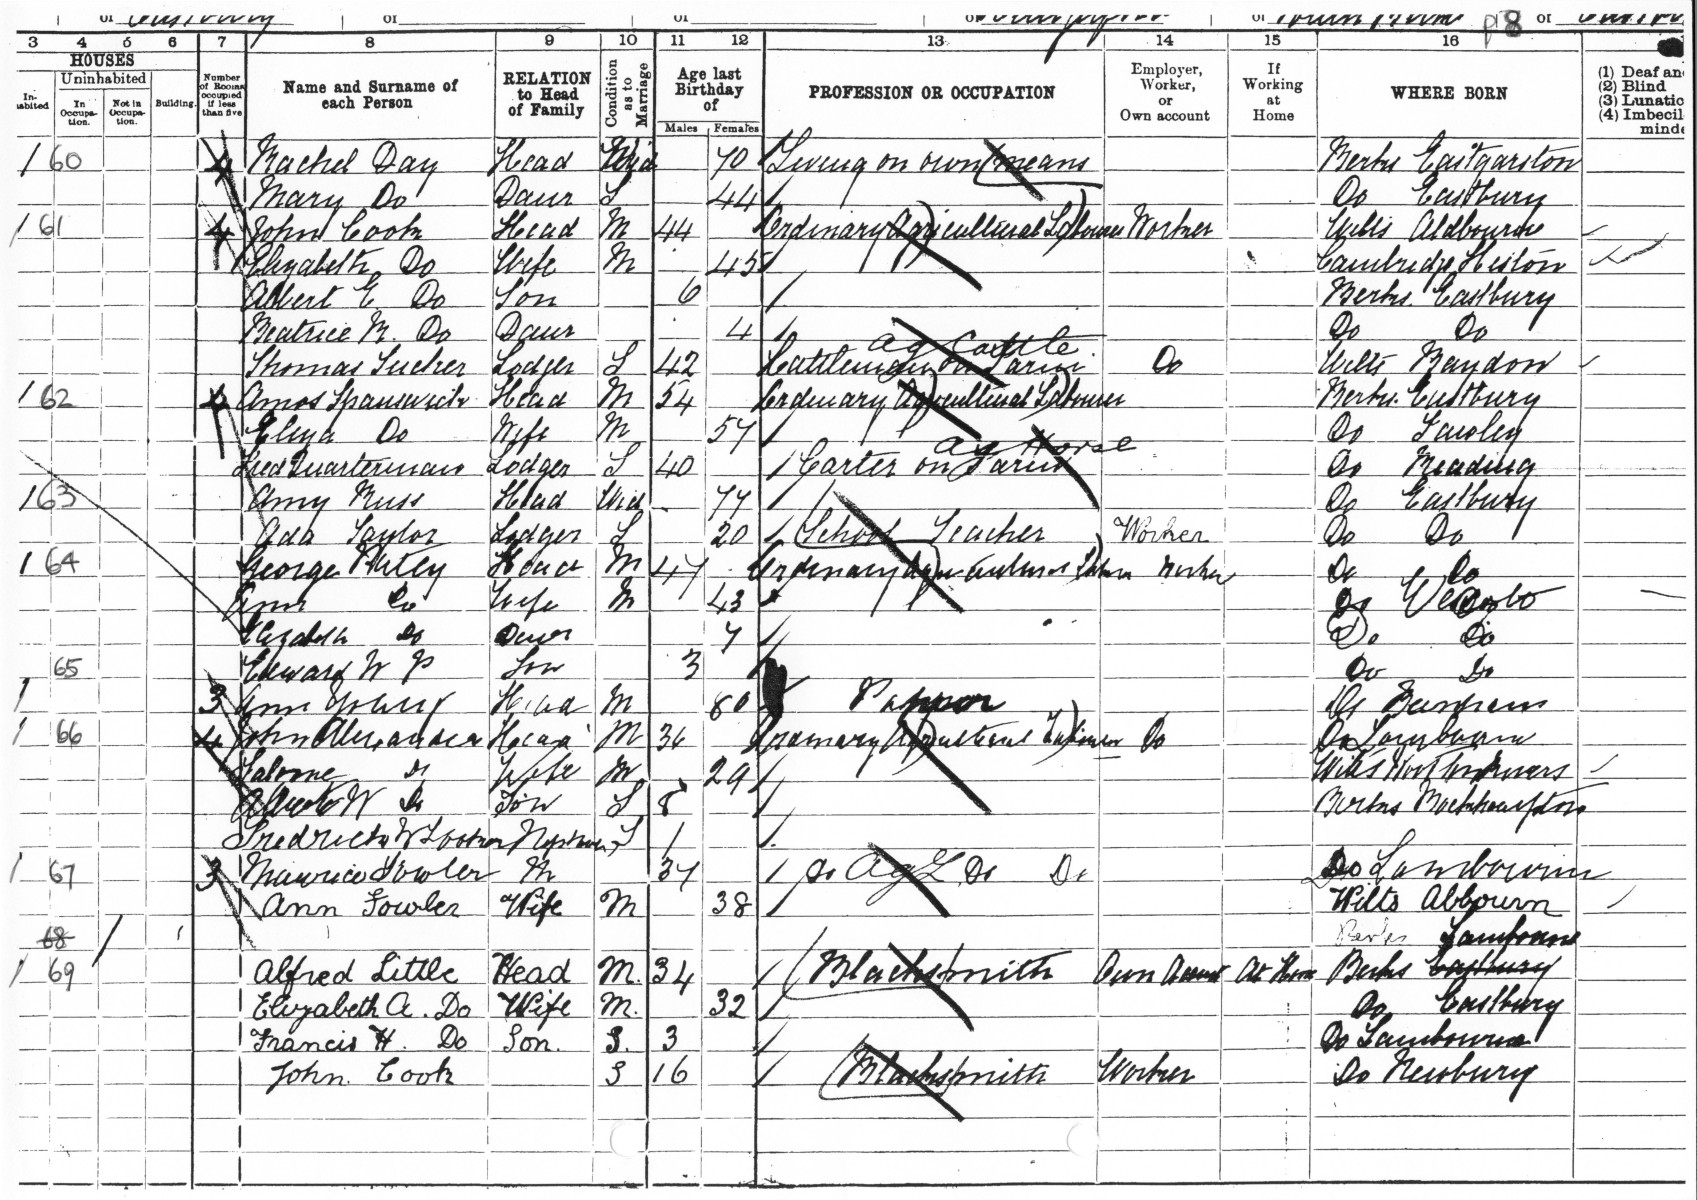 or Eastbury or or or or
3 4 5 6 7 8 9 10 11 12 13 14 15 16
HOUSES
Uninhabited
In- habited In Occupa- tion. Not in Occupa- tion. Building.
Number of Rooms occupied if less than five
Name and Surname of each Person
RELATION to Head of Family
Condition as to Marriage
Age last Birthday of
Males Females
PROFESSION OR OCCUPATION
Employer, Worker, or Own account
If Working at Home
WHERE BORN
(1) Deaf an
(2) Blind
(3) Lunatic
(4) Imbecil
minde
1 60 4 Rachel Day Head Wid 70 Living on own means Berks Eastgarston
Mary Do Daur S 44 Do Eastbury
1 61 4 John Cook Head M 44 Ordinary Agricultural Labourer Worker Wilts Aldbourne
Elizabeth Do Wife M 45 Cambridge Histon
Albert E Do Son 6 Berks. Eastbury
Beatrice M. Do Daur 4 Do Do
Ag Cattle
Thomas Lodger S 42 Cattleman on Farm Do Wilts Baydon
1 62 4 Amos Spanswick Head M 54 Ordinary Agricultural Labourer Berks. Eastbury
Eliza Do Wife M 57 Do Fawley
Ag Horse
Fred Quarterman Lodger S 40 Carter on Farm Do Reading
1 63 Amy Russ Head Wid 77 Do Eastbury
Ada Taylor Lodger S 20 School Teacher Worker Do Do
1 64 George Head M 47 Ordinary Agricultural Labourer Worker Do Do
Ann Do Wife M 43 Do
Elizabeth Do Daur 7 Do Do
65 Edward W Do Son 3 Do Do
1 3 Ann Head M 80 Pauper Do
1 66 4 John Alexander Head M 36 Ordinary Agricultural Labourer Do Do Lambourn
Salome Do Wife M 29 Wilts
Do Son S 8 Berks Bockhampton
Fredrick W Nephew S 1
1 67 3 Maurice Fowler M 37 Do Ag L Do Do Do Lambourn
Ann Fowler Wife M 38 Wilts Abbourn
68 / 1 Berks Lambourne
1 69 Alfred Little Head M. 34 Blacksmith Own Account At Home Berks Eastbury
Elizabeth A. Do Wife M. 32 Do Eastbury
Francis H. Do Son. S. 3 Do Lambourne
John. Cook S 16 Blacksmith Worker Do Newbury